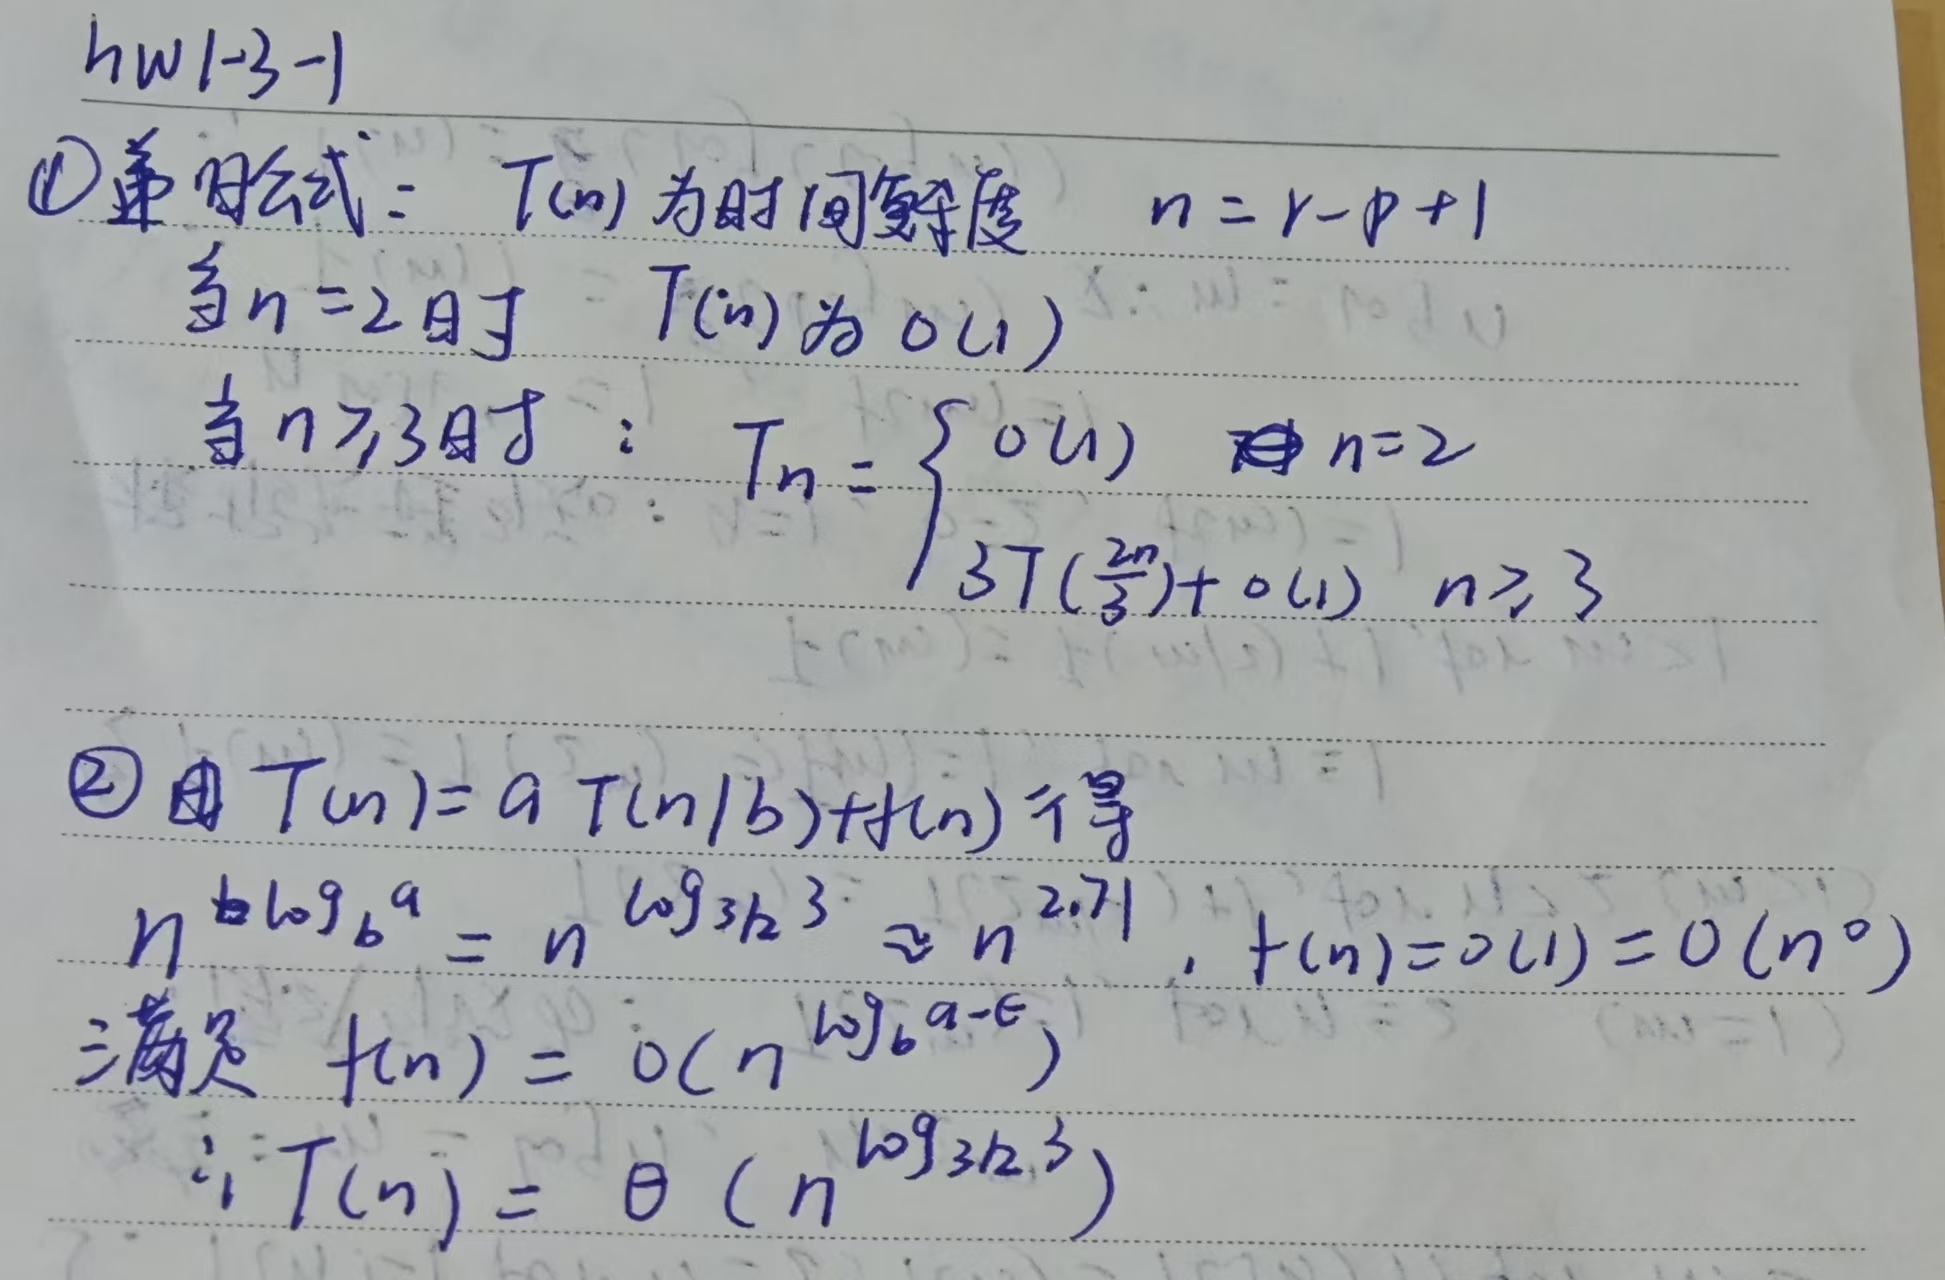 hw1-3-1
① 递归公式: T(n) 为时间复杂度 n = r-p+1
当n=2时 T(n) 为 O(1)
当n≥3时: Tn = { O(1) n=2
3T(2n/3)+O(1) n≥3
② 由 T(n)=aT(n/b)+f(n) 可得
n^{log_b a} = n^{log_{3/2} 3} ≈ n^{2.71}, f(n)=O(1)=O(n^0)
满足 f(n) = O(n^{log_b a-ε})
∴ T(n) = θ(n^{log_{3/2} 3})